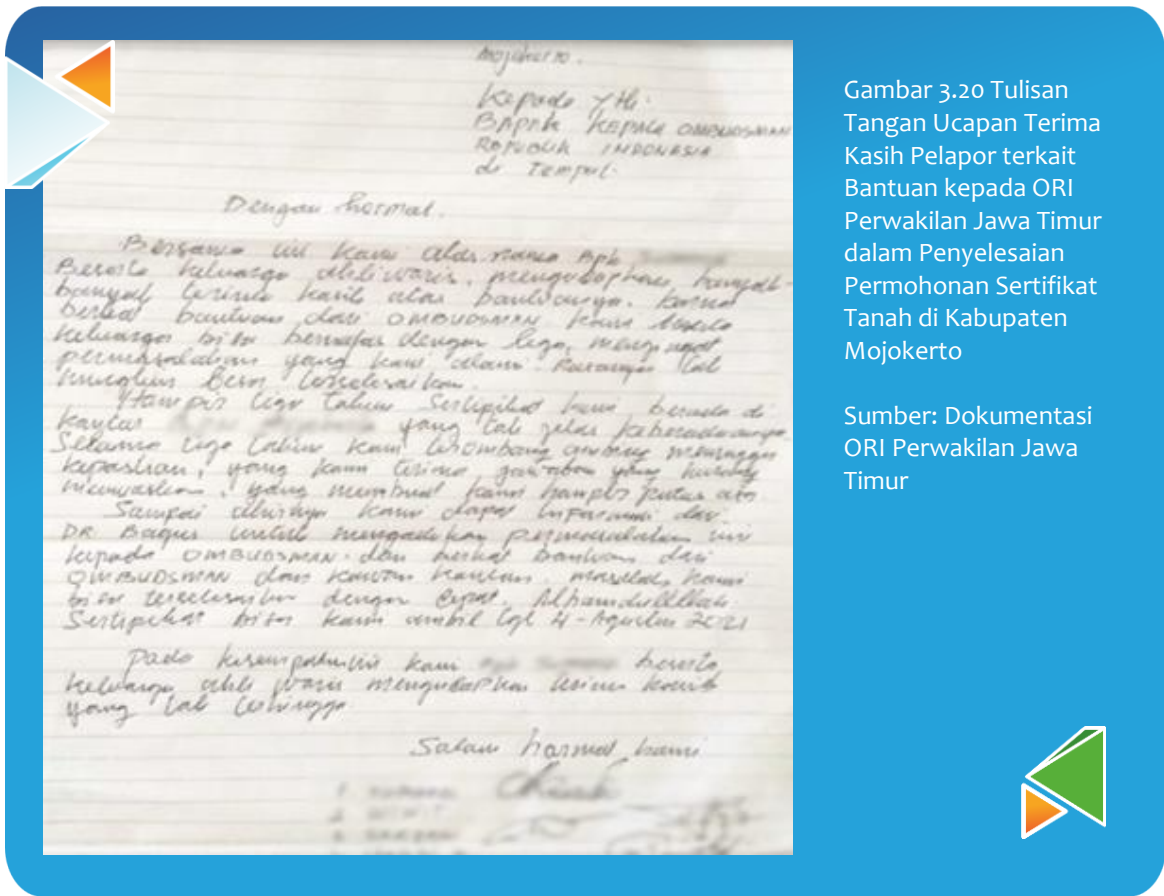 Mojokerto.
Kepada Yth.
BAPAK KEPALA OMBUDSMAN
REPUBLIK INDONESIA
di Tempat.
Dengan hormat.
Bersama ini kami atas nama Bpk
Beserta keluarga ahli waris, mengucapkan banyak-
banyak terima kasih atas bantuanya. Karna
berkat bantuan dari OMBUDSMAN kami beserta
keluarga bisa bernafas dengan lega, mengingat
permasalahan yang kami alami. Rasanya tak
mungkin bisa terselesaikan.
Hampir tiga tahun Sertipikat kami berada di
kantor yang tak jelas keberadaanya.
Selama tiga tahun kami terombang ambing menunggu
kepastian, yang kami terima jawaban yang kurang
, yang membuat kami hampir putus
Sampai akhirnya kami dapat informasi dari
DR Bagus untuk mengadukan permasalahan ini
kepada OMBUDSMAN. dan berkat bantuan dari
OMBUDSMAN dan kawan kawan, masalah kami
bisa terselesaikan dengan cepat. Alhamdulillah
Sertipikat bisa kami ambil tgl 4-Agustus 2021
Pada kesempatan ini kami beserta
keluarga ahli waris mengucapkan terima kasih
yang tak terhingga
Salam hormat kami
Gambar 3.20 Tulisan
Tangan Ucapan Terima
Kasih Pelapor terkait
Bantuan kepada ORI
Perwakilan Jawa Timur
dalam Penyelesaian
Permohonan Sertifikat
Tanah di Kabupaten
Mojokerto
Sumber: Dokumentasi
ORI Perwakilan Jawa
Timur